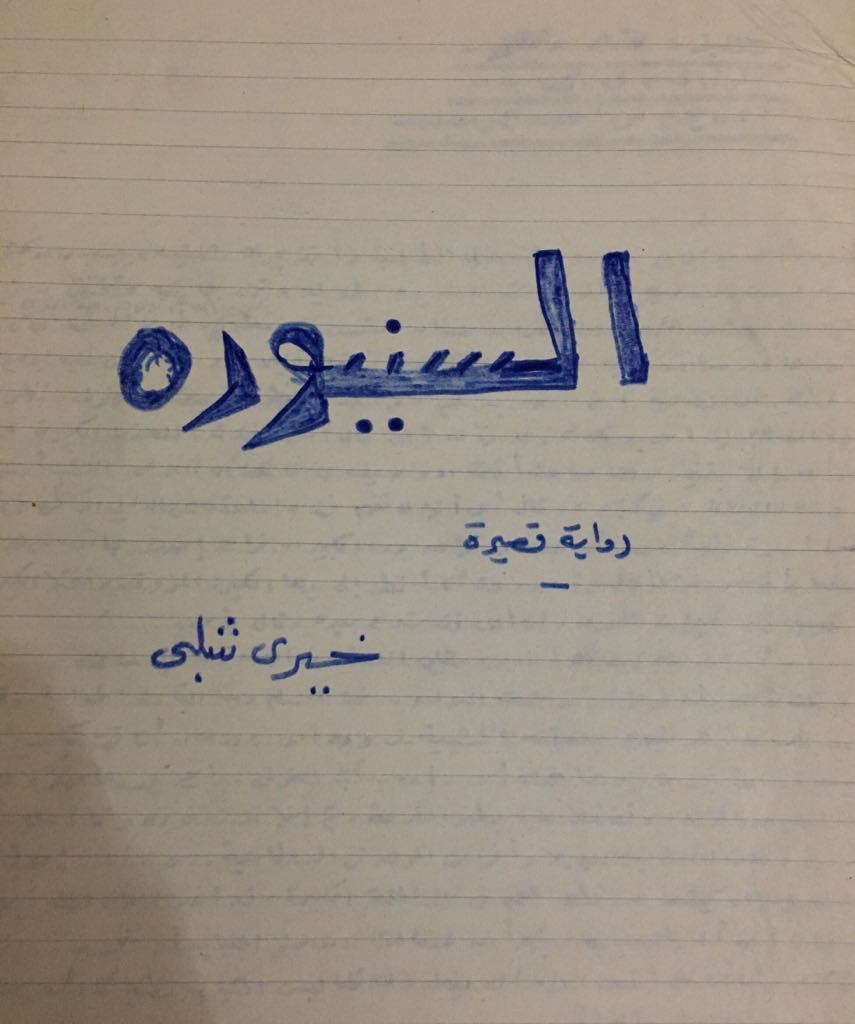 السنيوره
رواية قصيرة
خيرى شلبى